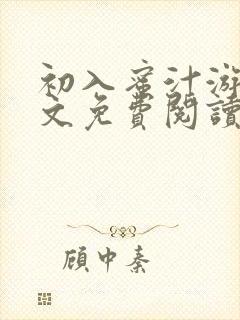 初入蜜汁游
文免費閱讀
顾中秦